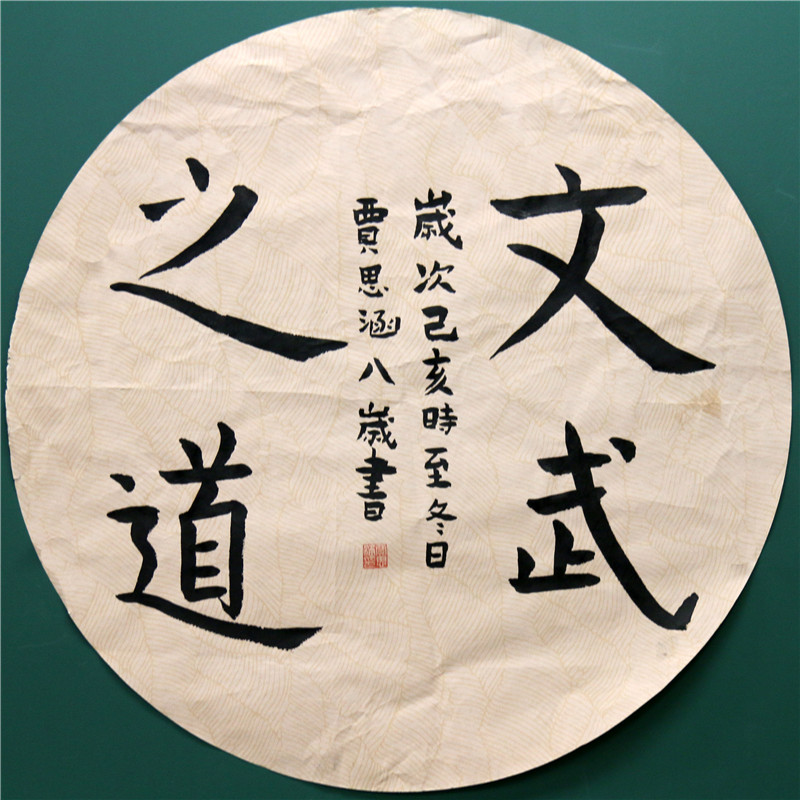 文武
之道
歲次己亥時至冬日
賈思涵八歲書